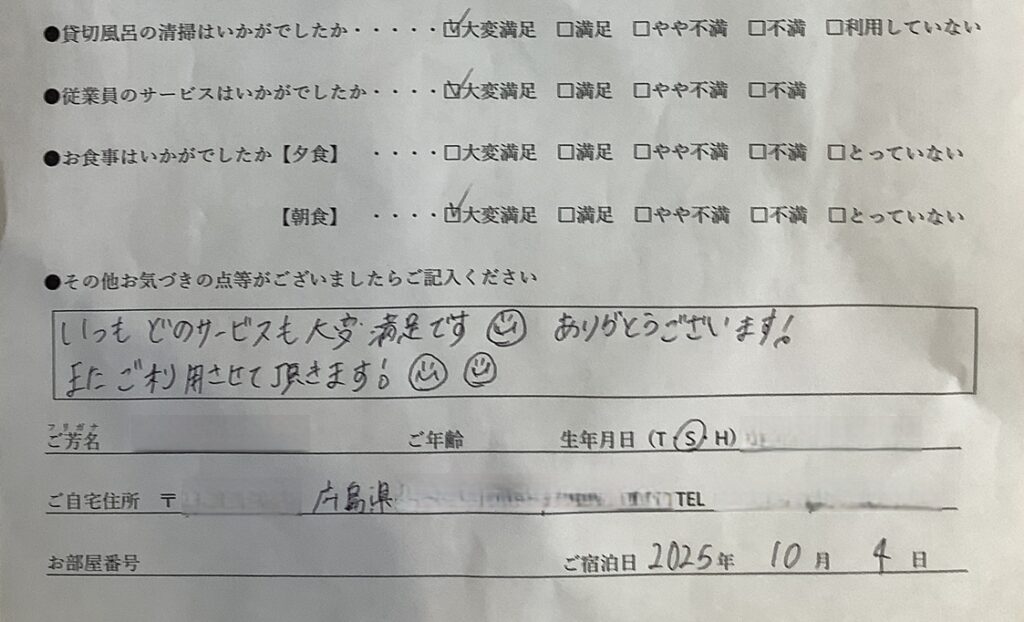 ●貸切風呂の清掃はいかがでしたか・・・・・☑大変満足 □満足 □やや不満 □不満 □利用していない
●従業員のサービスはいかがでしたか・・・・☑大変満足 □満足 □やや不満 □不満
●お食事はいかがでしたか【夕食】 ・・・・□大変満足 □満足 □やや不満 □不満 □とっていない
【朝食】 ・・・・☑大変満足 □満足 □やや不満 □不満 □とっていない
●その他お気づきの点等がございましたらご記入ください
いつも どのサービスも大変満足です ☺ ありがとうございます!
またご利用させて頂きます! ☺ ☺
フリガナ
ご芳名 ご年齢 生年月日(T・S・H)
ご自宅住所 〒 広島県 TEL
お部屋番号 ご宿泊日 2025年 10月 4日